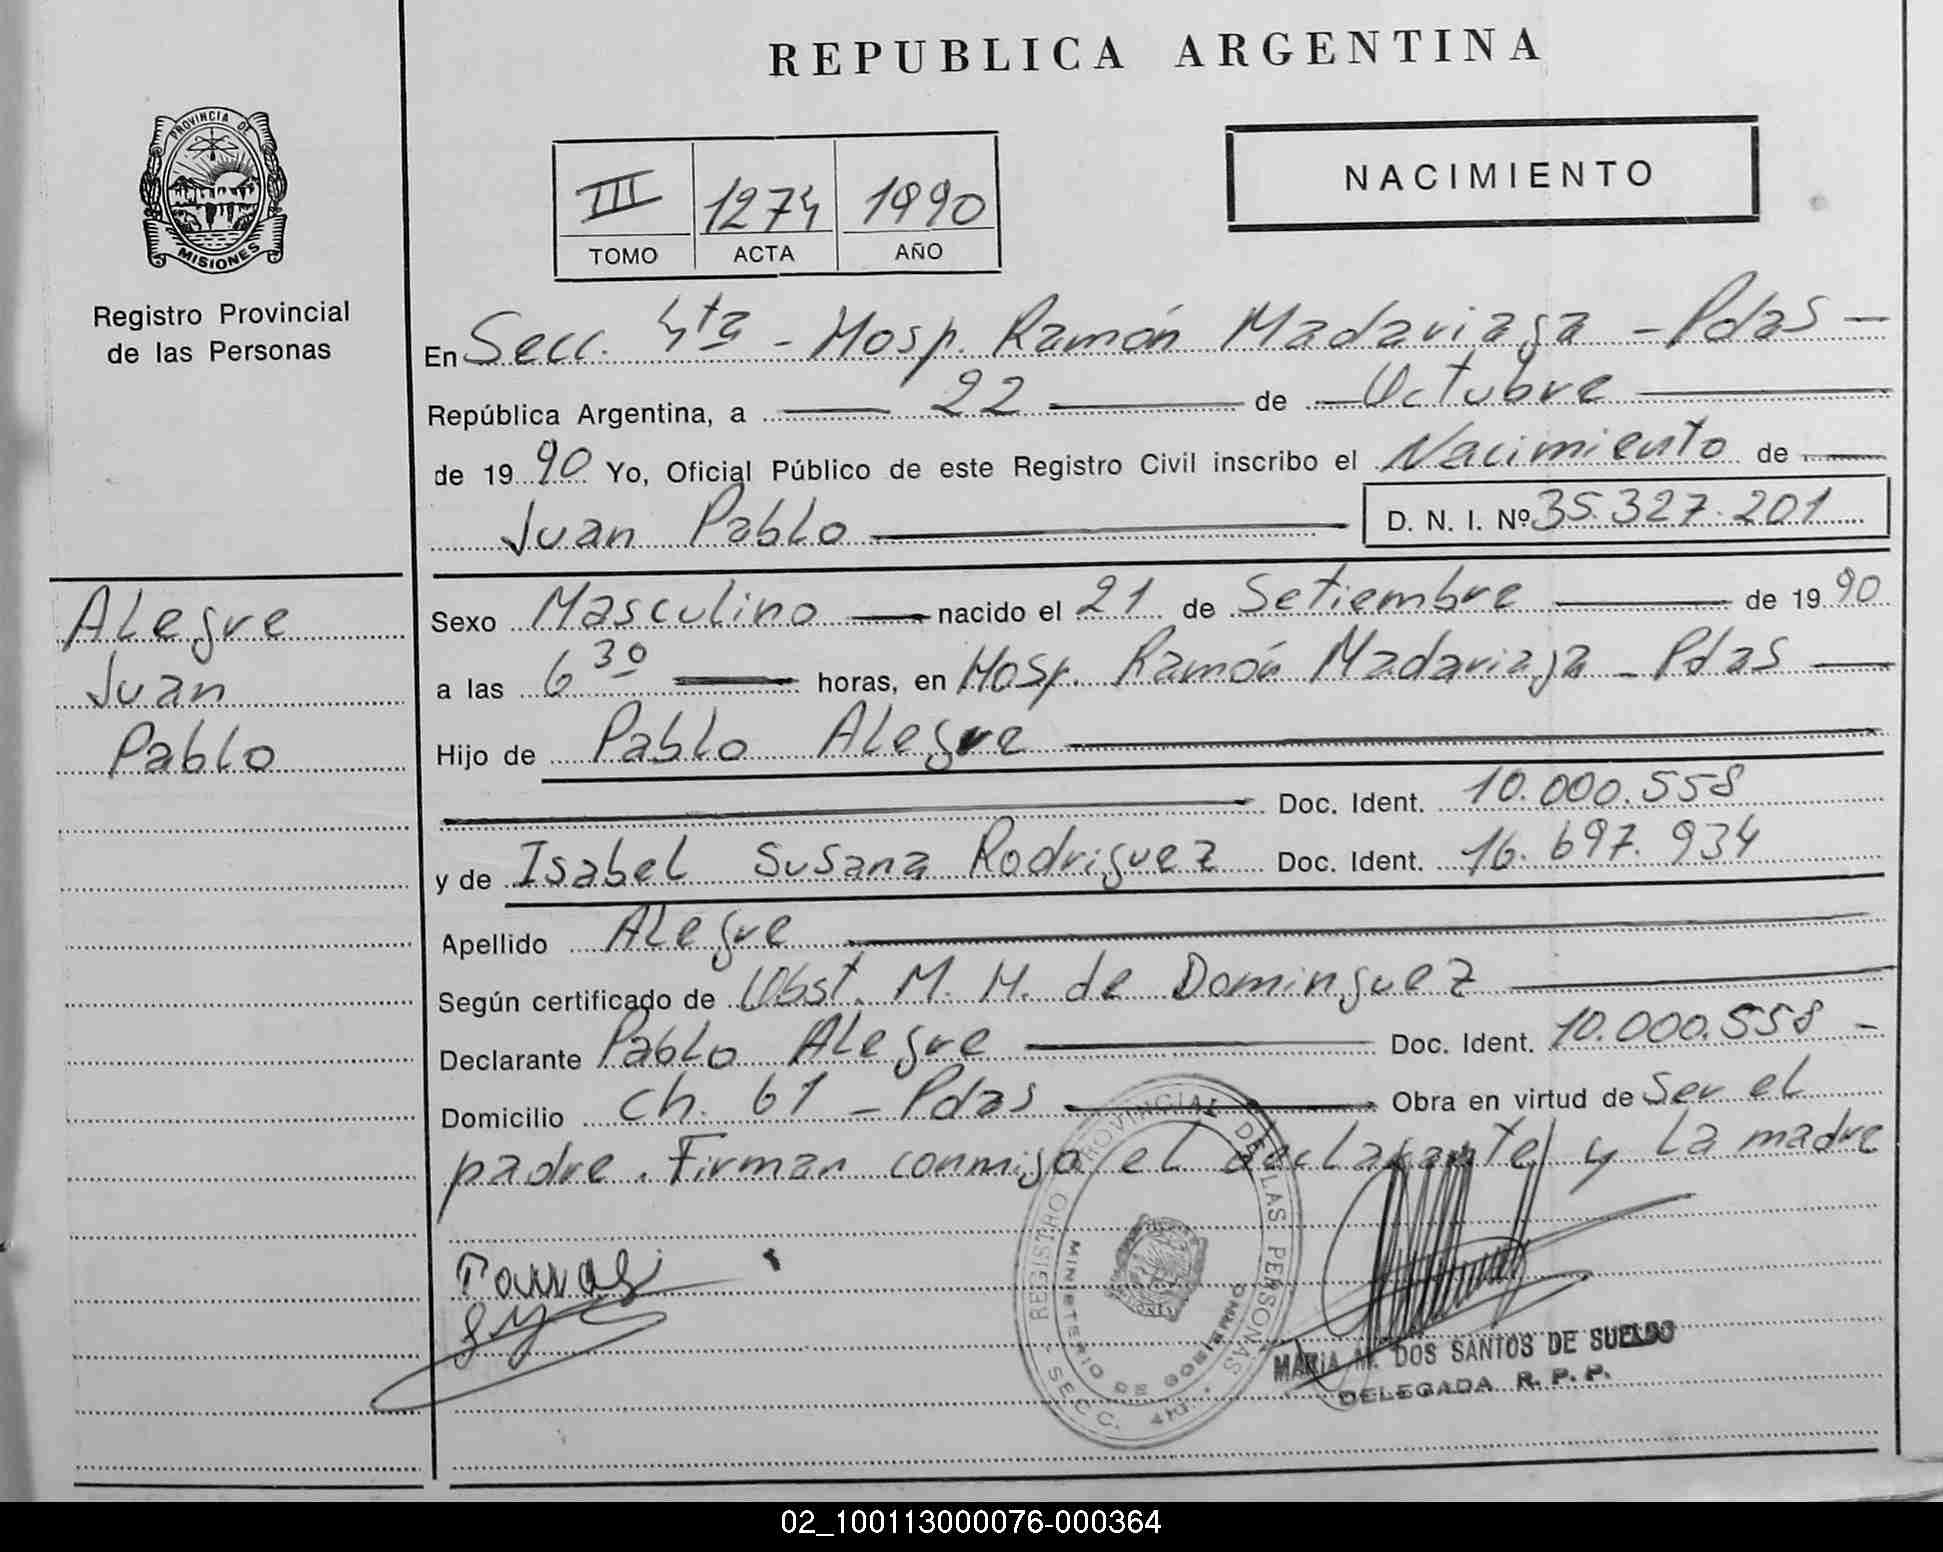 REPUBLICA ARGENTINA
PROVINCIA DE
MISIONES
Registro Provincial
de las Personas
III 1274 1990
TOMO ACTA AÑO
NACIMIENTO
En Secc. 4ta - Hosp. Ramón Madariaga - Pdas -
República Argentina, a 22 de Octubre
de 1990 Yo, Oficial Público de este Registro Civil inscribo el Nacimiento de
Juan Pablo D. N. I. Nº 35.327.201
Alegre
Juan
Pablo
Sexo Masculino nacido el 21 de Setiembre de 1990
a las 6 30 horas, en Hosp. Ramón Madariaga - Pdas
Hijo de Pablo Alegre
Doc. Ident. 10.000.558
y de Isabel Susana Rodriguez Doc. Ident. 16.697.934
Apellido Alegre
Según certificado de Obst. M. H. de Dominguez
Declarante Pablo Alegre Doc. Ident. 10.000.558 -
Domicilio Ch. 61 - Pdas Obra en virtud de Ser el
padre. Firman conmigo el declarante y la madre
REGISTRO PROVINCIAL DE LAS PERSONAS
MINISTERIO DE GOBIERNO
SECC. 4ta
MARIA M. DOS SANTOS DE SUELDO
DELEGADA R. P. P.
02_100113000076-000364